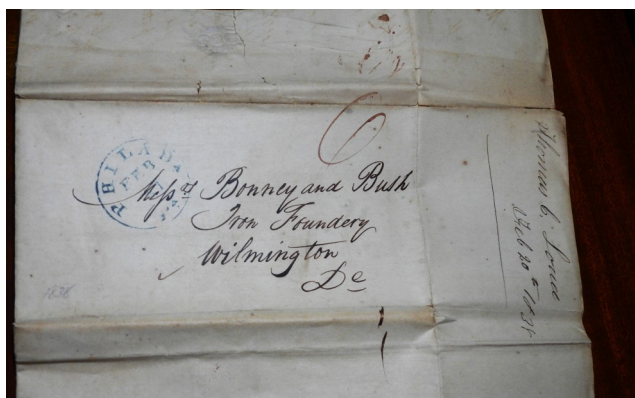 6
PHILADA
FEB
Mess.rs Bonney and Bush
Iron Foundery
Wilmington
De
1838
Thomas C.
Feb 20th 1838